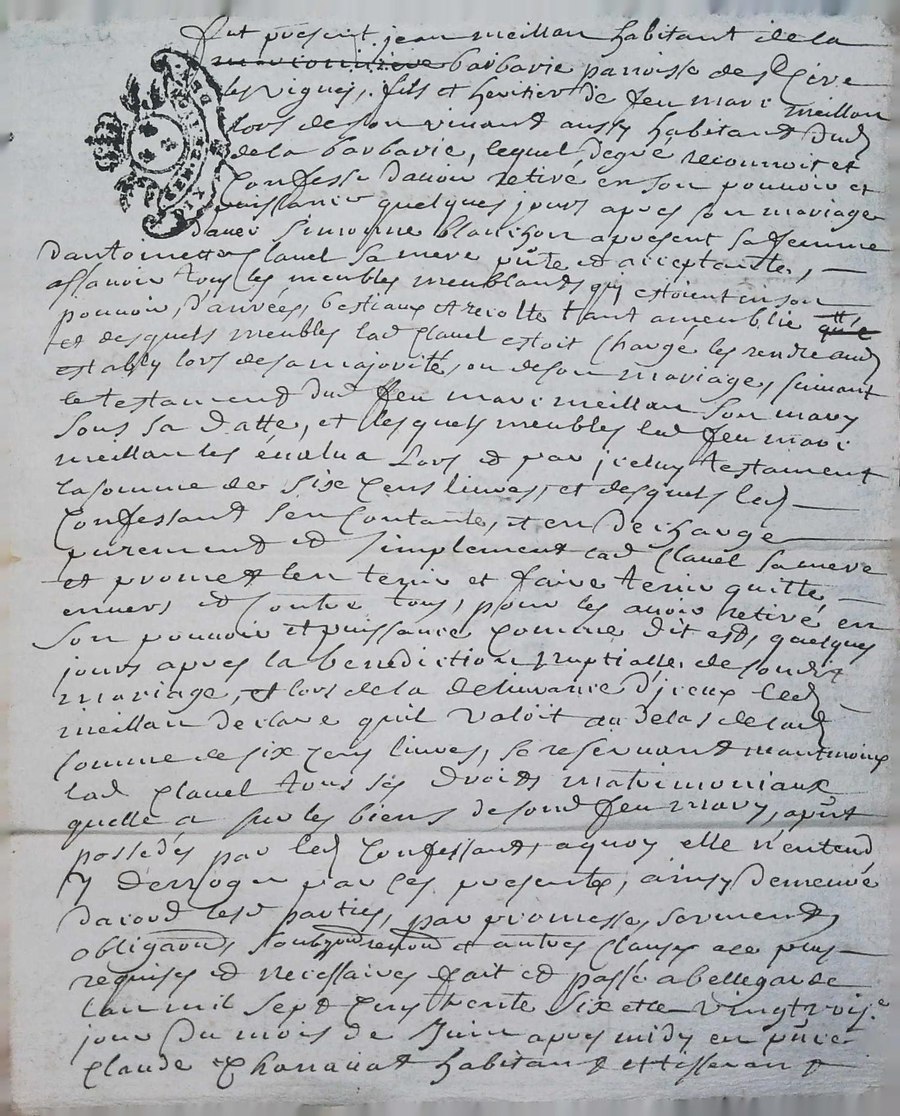 fut present jean meillan habitant de la
barbarie parroisse de st Cire
les vignes, fils et heritier de feu mari meillan
lors de son vivant aussy habitant dud
de la barbarie, lequel degré reconnoit et
Confesse davoir retiré en son pouvoir et
puissance quelques jours apres son mariage
avec simonne blanchon apresent sa femme
dantoinette Clauel sa mere pnte et acceptante, —
assavoir tous les meubles meublants quy estoient en son
pouvoir, danrées, bestiaux et recolte tant ameublie
et desquels meubles lad Clauel estoit Chargé les rendre aud
estably lors de sa majorité, ou de son mariage, suivant
le testament dud feu mari meillan son mary
sous sa datte, et lesquels meubles led feu mari
meillan les évalua Lors et par jceluy testament
la somme de six Cens liures, et desquels led —
Confessant sen Contante, et en décharge
purement et simplement lad Clauel sa mere
et promet len tenir et faire tenir quitte —
enuers et Contre tous, pour les auoir retiré en
son pouvoir et puissance comme dit est, quelques
jours apres la benediction nuptialle de sondit
mariage, et lors de la deliurance d'jceux led —
meillan declare quil valoit au dela de lad
somme de six Cens liures, se reseruant neantmoins
lad Clauel tous ses droits matrimoniaux
quelle a sur les biens de sond feu mary, apnt
possedés par led Confessant, aquoy elle n'entend
y derroger par ces presente, ainsy demeuré
dacord lesd parties, par promesse, serment,
obligaons, et autres Clauses ace plus
requises et necessaires fait et passé a bellegarde
lan mil sept Cens trente six et le vingt trois.e
jour du mois de Juin apres midy en pnce
Claude Charauat habitant et tisserant